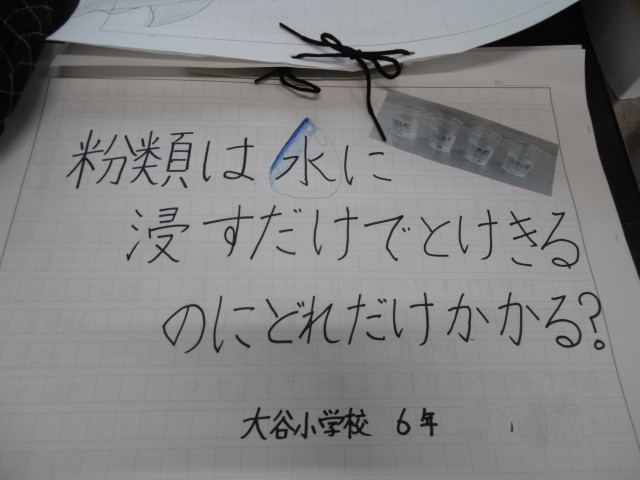 粉類は水に
浸すだけでとけきる
のにどれだけかかる?
大谷小学校 6年